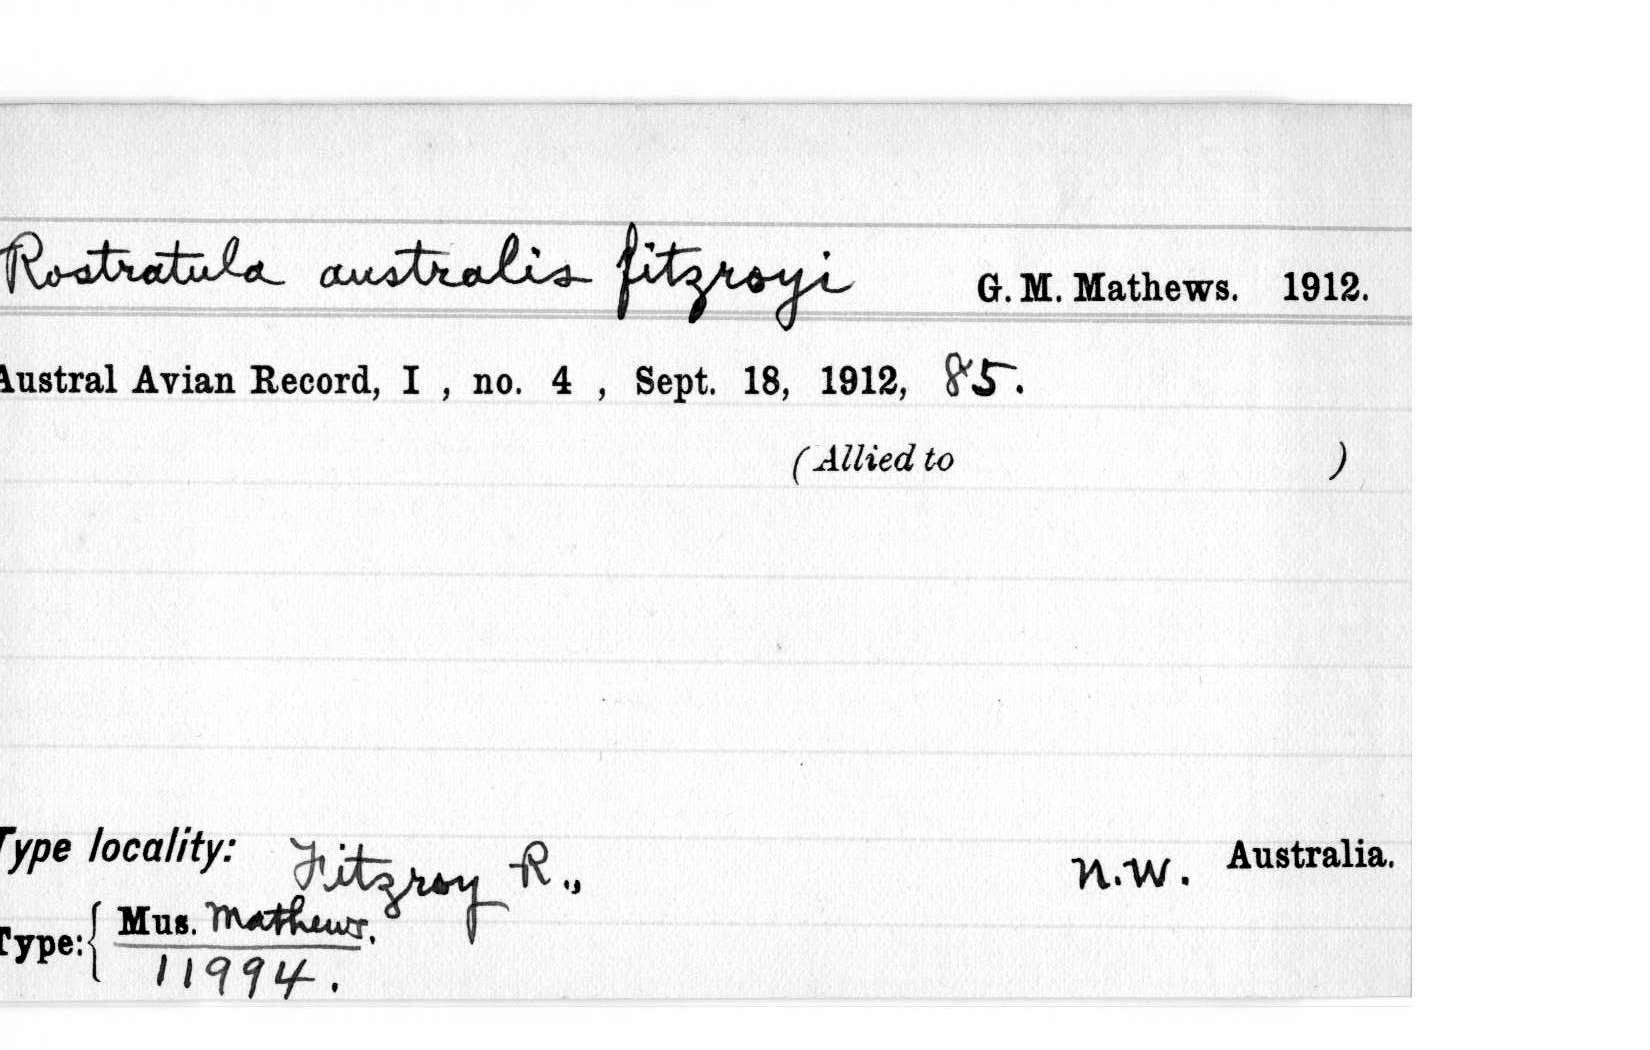 Rostratula australis fitzroyi G. M. Mathews. 1912.
Austral Avian Record, I , no. 4 , Sept. 18, 1912, 85.
(Allied to )
Type locality: Fitzroy R., N.W. Australia.
Type: { Mus. Mathews.
11994.